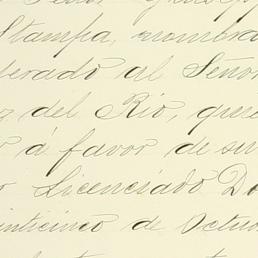 Stampa, nombra
derado al Señor
del Rio, que
á favor de su
Licenciado Do
inticinco de Octu